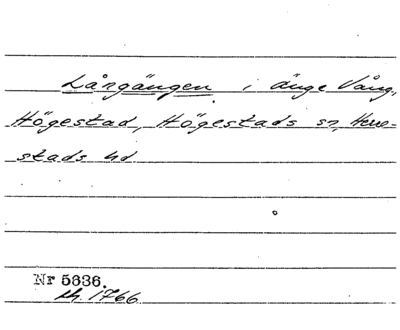 Lårgängen i änge Vång,
Högestad, Högestads sn, Herre-
stads hd
Nr 5636.
1766